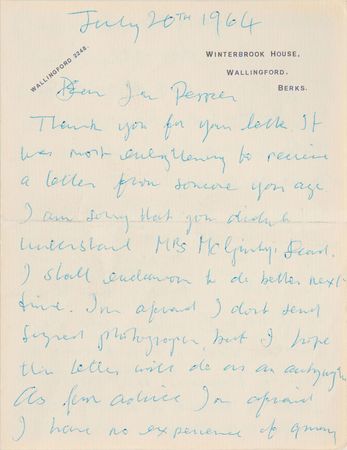 July 20TH 1964
WALLINGFORD 2248.
WINTERBROOK HOUSE,
WALLINGFORD.
BERKS.
Dear Ian Pepper
Thank you for your letter It
was most enlightening to receive
a letter from someone your age
I am sorry that you didn't
understand Mrs McGinty's Dead.
I shall endeavour to do better next
time. I'm afraid I don't send
signed photographs, but I hope
this letter will do as an autograph
As for advice I'm afraid
I have no experience of